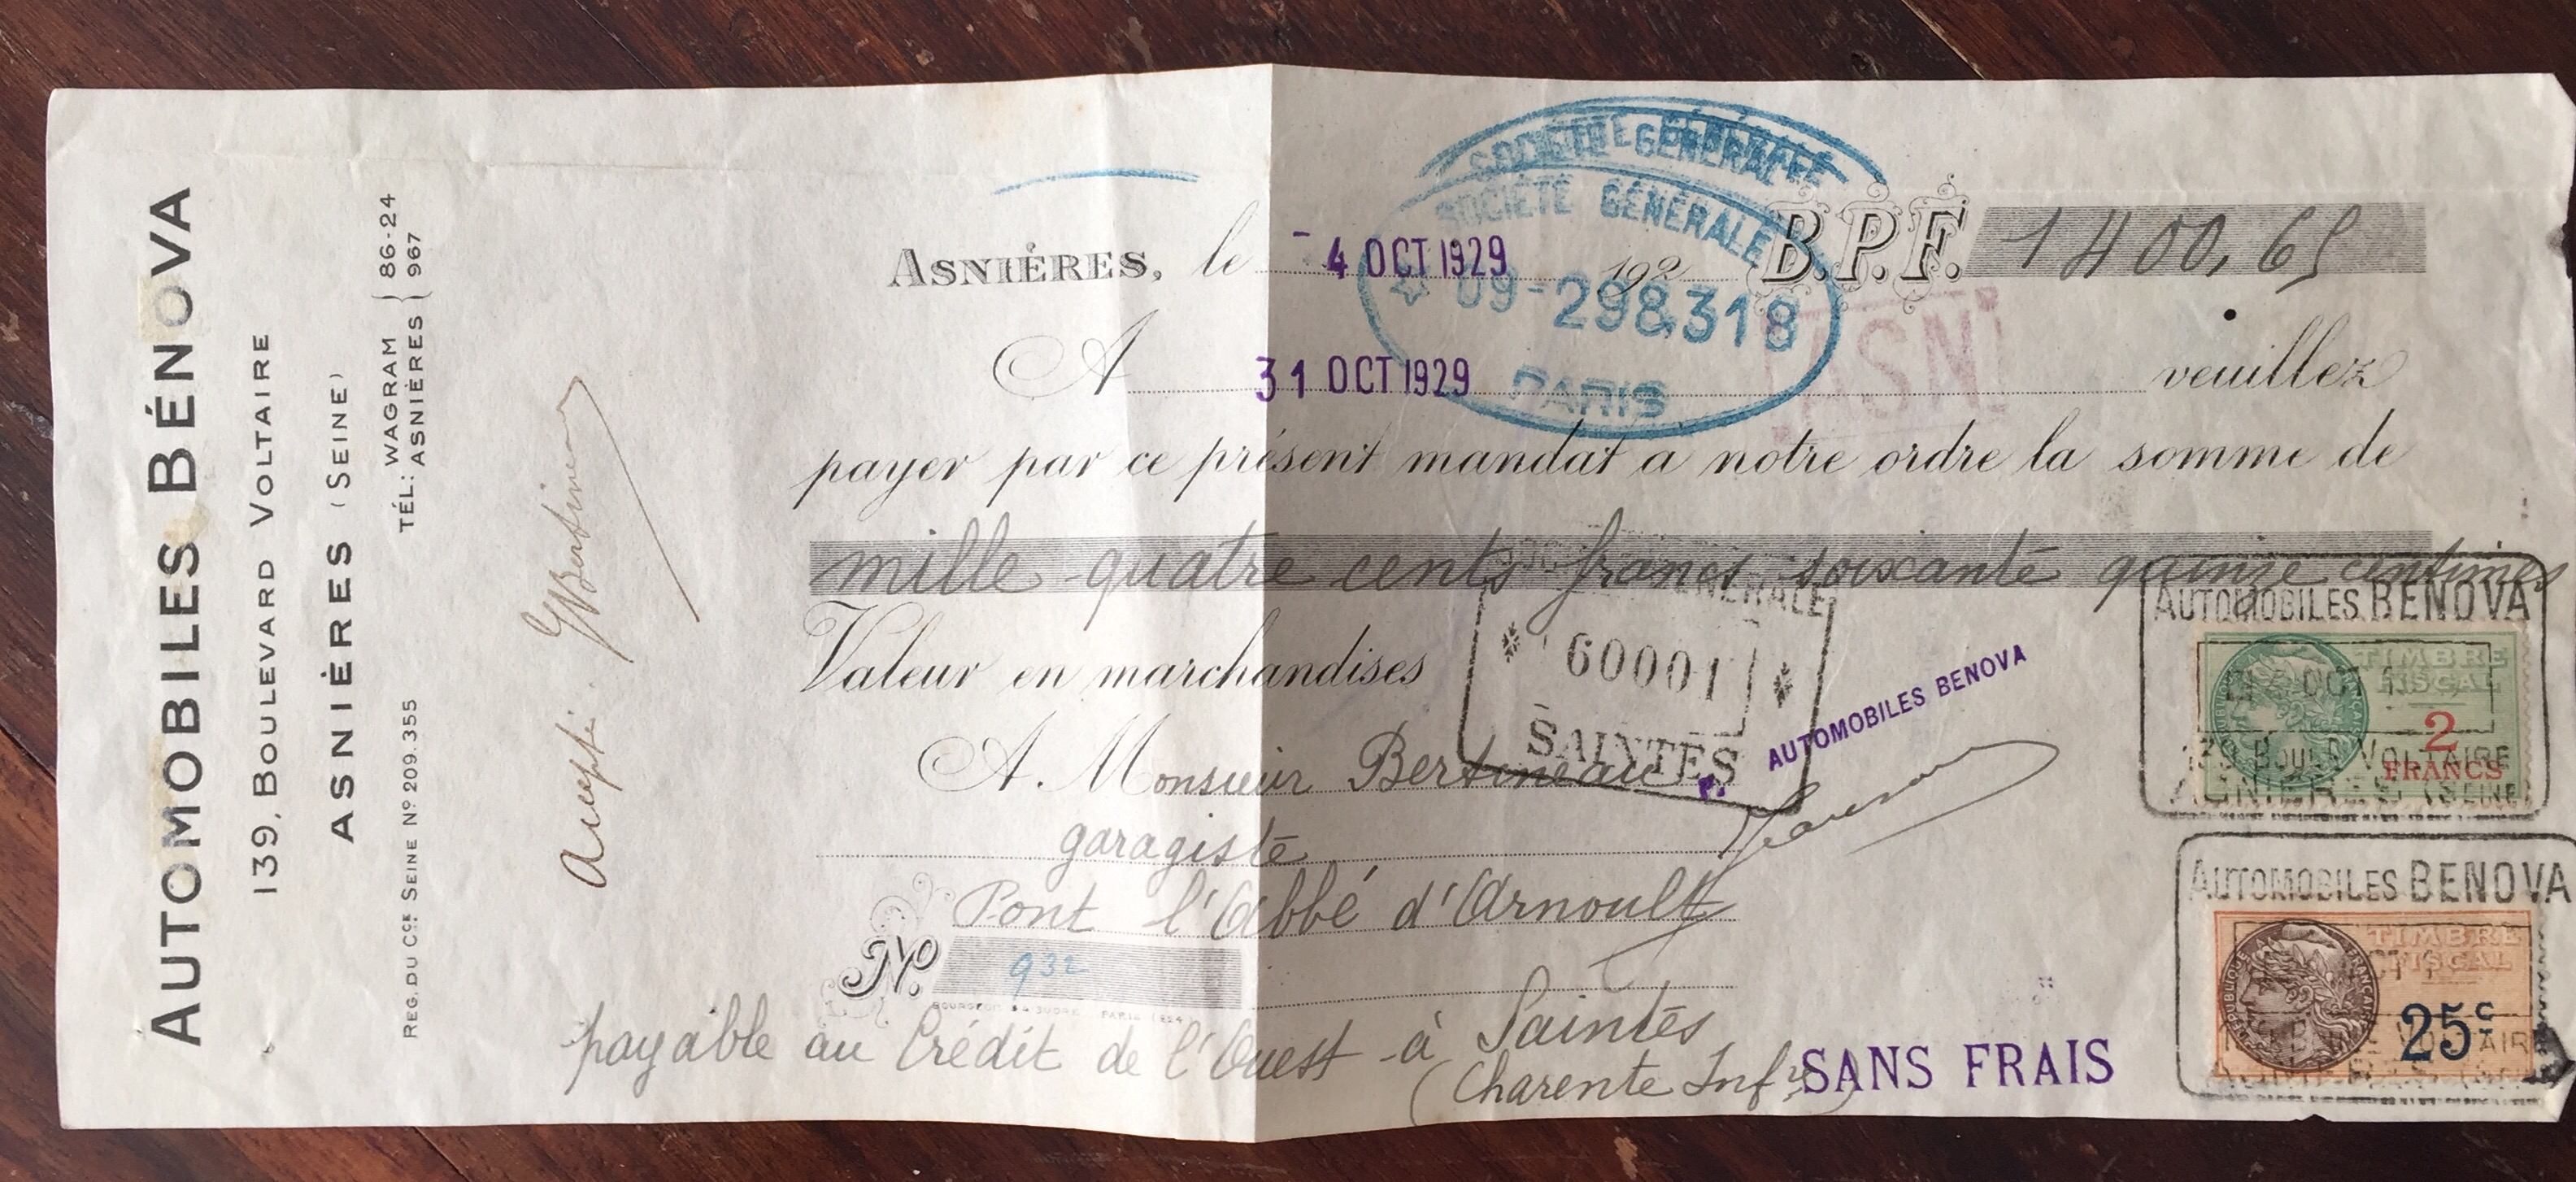 AUTOMOBILES BÉNOVA
139, BOULEVARD VOLTAIRE
ASNIÈRES (SEINE)
TÉL: WAGRAM 86-24
ASNIÈRES 967
REG. DU CCE SEINE No 209.355
Accepté. Bertineau
SOCIÉTÉ GÉNÉRALE
SOCIÉTÉ GÉNÉRALE
09-298,318
PARIS
ASNIÈRES, le - 4 OCT 1929 192 B.P.F. 1400,65
ASN
A 31 OCT 1929 veuillez
payer par ce présent mandat à notre ordre la somme de
mille quatre cents francs soixante quinze centimes
Valeur en marchandises
GÉNÉRALE
60001
SAINTES
P. AUTOMOBILES BENOVA
A. Monsieur Bertineau
garagiste
Pont l'Abbé d'Arnoult
No. 932
PARIS
payable au Crédit de l'Ouest à Saintes
(Charente Infre)
SANS FRAIS
AUTOMOBILES BENOVA
TIMBRE
FISCAL
2
FRANCS
OCT
139 BOULD VOLTAIRE
ASNIÈRES (SEINE)
AUTOMOBILES BENOVA
TIMBRE
FISCAL
RÉPUBLIQUE FRANÇAISE
25c